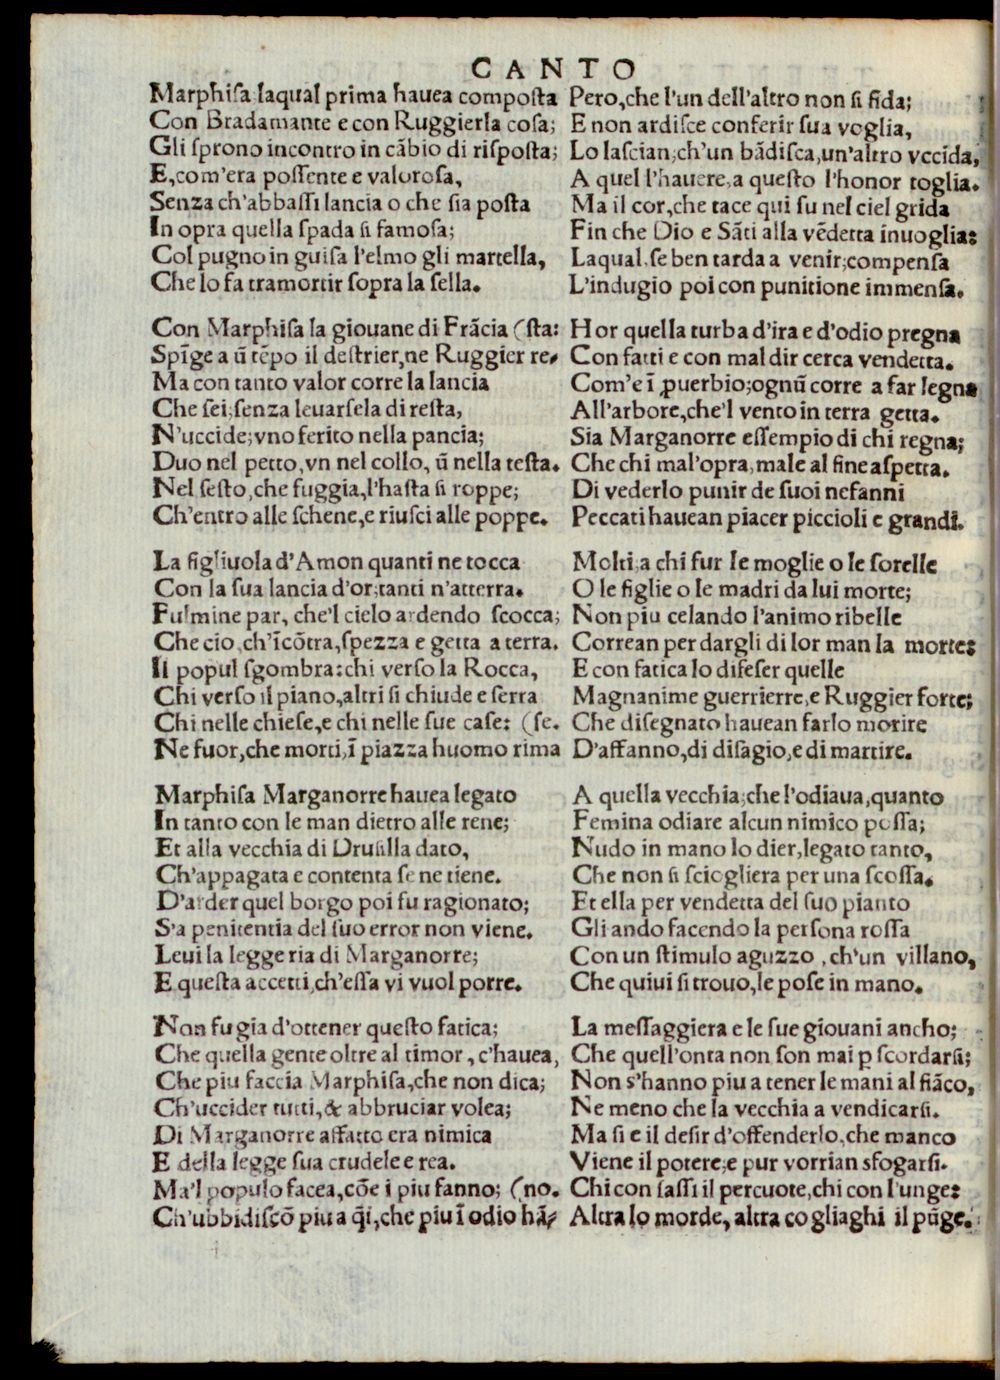 CANTO
Marphiſa laqual prima hauea compoſta
Con Bradamante e con Ruggierla coſa;
Gli ſprono incontro in cãbio di riſpoſta;
E,com'era poſſente e valoroſa,
Senza ch'abbaſſi lancia o che ſia poſta
In opra quella ſpada ſi famoſa;
Col pugno in guiſa l'elmo gli martella,
Che lo fa tramortir ſopra la ſella.
Con Marphiſa la giouane di Frãcia (ſta:
Spĩge a ũ tẽpo il deſtrier,ne Ruggier re-
Ma con tanto valor corre la lancia
Che ſei;ſenza leuarſela di reſta,
N'uccide;vno ferito nella pancia;
Duo nel petto,vn nel collo, ũ nella teſta.
Nel ſeſto,che fuggia,l'haſta ſi roppe;
Ch'entro alle ſchene,e riuſci alle poppe.
La figliuola d'Amon quanti ne tocca
Con la ſua lancia d'or;tanti n'atterra.
Fulmine par, che'l cielo ardendo ſcocca;
Che cio,ch'ĩcõtra,ſpezza e getta a terra.
Il popul ſgombra:chi verſo la Rocca,
Chi verſo il piano,altri ſi chiude e ſerra
Chi nelle chieſe,e chi nelle ſue caſe: (ſe.
Ne fuor,che morti,ĩ piazza huomo rima
Marphiſa Marganorre hauea legato
In tanto con le man dietro alle rene;
Et alla vecchia di Druſilla dato,
Ch'appagata e contenta ſe ne tiene.
D'arder quel borgo poi fu ragionato;
S'a penitentia del ſuo error non viene.
Leui la legge ria di Marganorre;
E queſta accetti,ch'eſſa vi vuol porre.
Non fu gia d'ottener queſto fatica;
Che quella gente oltre al timor, c'hauea,
Che piu faccia Marphiſa,che non dica;
Ch'uccider tutti,& abbruciar volea;
Di Marganorre affatto era nimica
E della legge ſua crudele e rea.
Ma'l populo facea,cõe i piu fanno; (no.
Ch'ubbidiſcõ piu a q̃i,che piu ĩ odio hã-
Pero,che l'un dell'altro non ſi fida;
E non ardiſce conferir ſua voglia,
Lo laſcian;ch'un bãdiſca,un'altro vccida,
A quel l'hauere,a queſto l'honor toglia.
Ma il cor,che tace qui ſu nel ciel grida
Fin che Dio e Sãti alla vẽdetta inuoglia:
Laqual,ſe ben tarda a venir;compenſa
L'indugio poi con punitione immenſa.
Hor quella turba d'ira e d'odio pregna
Con fatti e con mal dir cerca vendetta.
Com'e ĩ ꝓuerbio;ognũ corre a far legna
All'arbore,che'l vento in terra getta.
Sia Marganorre eſſempio di chi regna;
Che chi mal'opra,male al fine aſpetta.
Di vederlo punir de ſuoi nefanni
Peccati hauean piacer piccioli e grandi.
Molti;a chi fur le moglie o le ſorelle
O le figlie o le madri da lui morte;
Non piu celando l'animo ribelle
Correan per dargli di lor man la morte:
E con fatica lo difeſer quelle
Magnanime guerrierre,e Ruggier forte;
Che diſegnato hauean farlo morire
D'affanno,di diſagio,e di martire.
A quella vecchia;che l'odiaua,quanto
Femina odiare alcun nimico poſſa;
Nudo in mano lo dier,legato tanto,
Che non ſi ſciogliera per una ſcoſſa.
Et ella per vendetta del ſuo pianto
Gli ando facendo la perſona roſſa
Con un ſtimulo aguzzo ,ch'un villano,
Che quiui ſi trouo,le poſe in mano.
La meſſaggiera e le ſue giouani ancho;
Che quell'onta non ſon mai ꝑ ſcordarſi;
Non s'hanno piu a tener le mani al fiãco,
Ne meno che la vecchia a vendicarſi.
Ma ſi e il deſir d'offenderlo,che manco
Viene il potere;e pur vorrian sfogarſi.
Chi con ſaſſi il percuote,chi con l'unge:
Altra lo morde, altra co gliaghi il pũge.